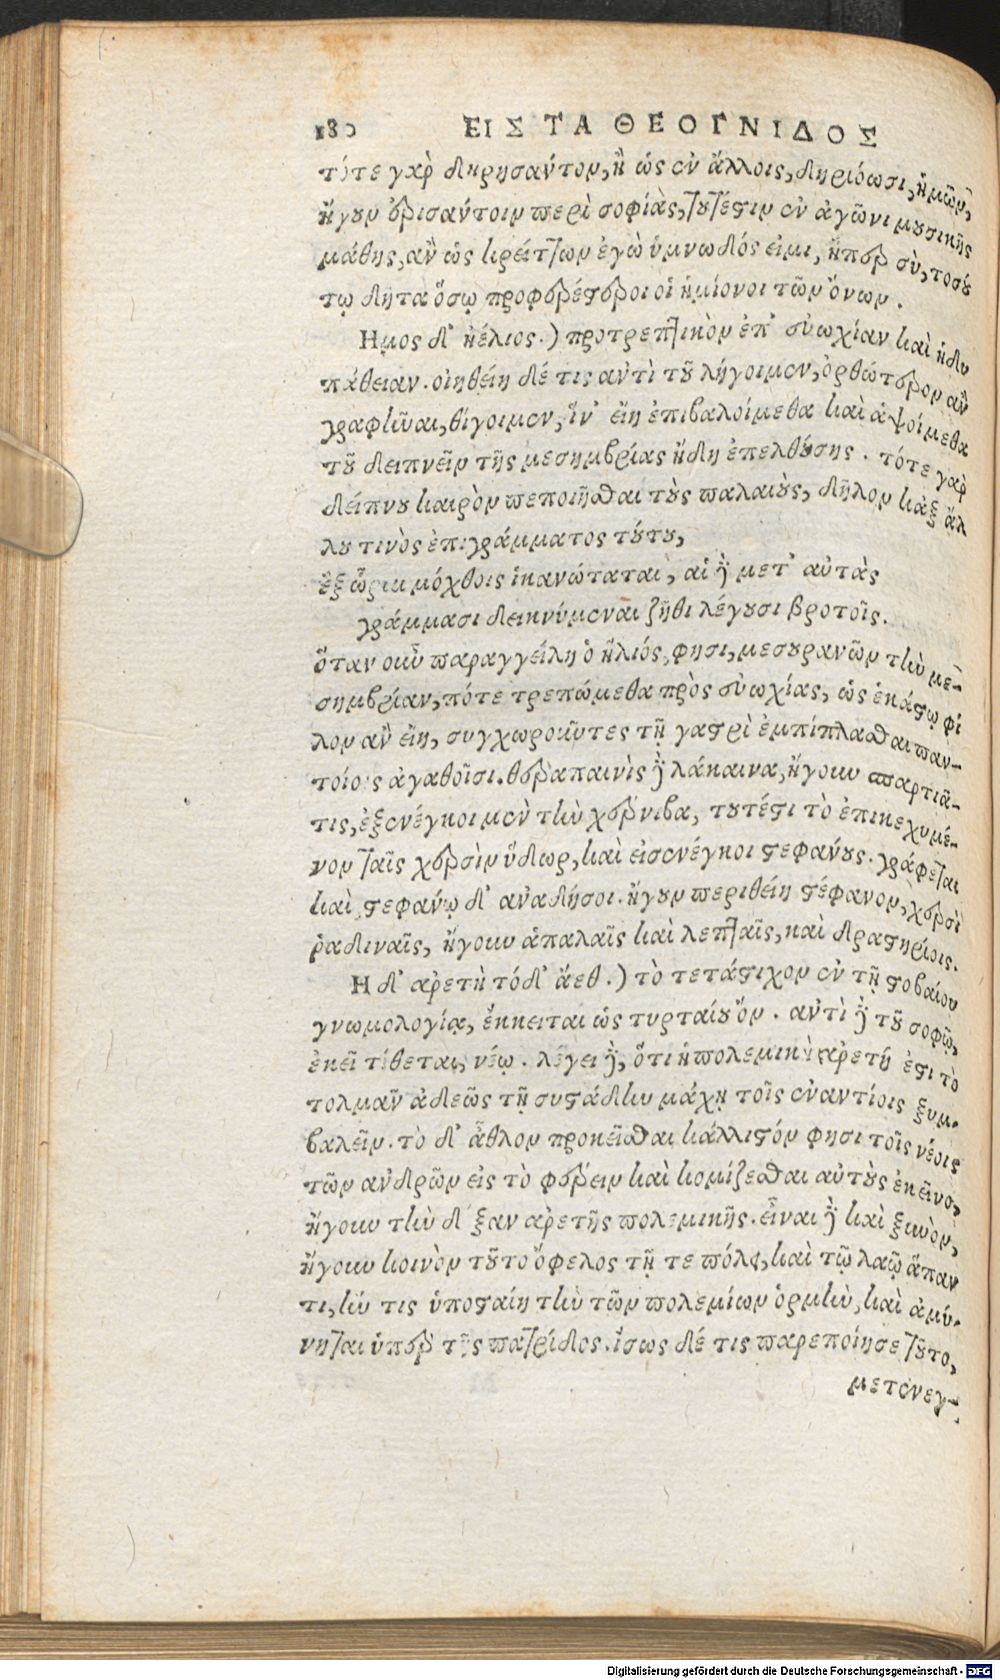 180 ΕΙΣ ΤΑ ΘΕΟΓΝΙΔΟΣ
τότε γὰρ δηρησαύτον, ἢ ὡς ἐν ἄλλοις, δηριόωσι, ἡμῶν,
ἤγουν ἐρισαύτοιν περὶ σοφίας, τουτέστιν ἐν ἀγῶνι μουσικῆς
μάθης, ἂν ὡς κρείττων ἐγὼ ὑμνωδός εἰμι, ἤπερ σὺ, τοσού
τῳ δῆτα ὅσῳ προφερέστεροι οἱ ἡμίονοι τῶν ὄνων.
Ημος δ' ἠέλιος.) προτρεπτικὸν ἐπ' εὐωχίαν καὶ ἡδυ
πάθειαν. οἰηθείη δέ τις αντὶ τοῦ λήγοιμεν, ὀρθώτερον ἂν
γραφῆναι, θίγοιμεν, ἵν' εἴη ἐπιβαλοίμεθα καὶ ἁψοίμεθα
τοῦ δειπνεῖν τῆς μεσημβρίας ἤδη ἐπελθούσης. τότε γὰρ
δείπνου καιρὸν πεποιῆσθαι τοὺς παλαιοὺς, δῆλον κἀξ ἄλ
λου τινὸς ἐπιγράμματος τούτου,
ἓξ ὧραι μόχθοις ἱκανώταται, αἱ δὲ μετ' αὐτὰς
γράμμασι δεικνύμεναι ζῆθι λέγουσι βροτοῖς.
ὅταν οὖν παραγγείλη ὁ ἥλιός, φησι, μεσουρανῶν τὴν με-
σημβρίαν, πότε τρεπώμεθα πρὸς εὐωχίας, ὡς ἑκάστῳ φί
λον ἂν εἴη, συγχωροῦντες τῇ γαστρὶ ἐμπίπλασθαι παν-
τοίοις ἀγαθοῖσι. θεραπαινὶς δὲ λάκαινα, ἤγουν σπαρτιᾶ-
τις, ἐξενέγκοι μὲν τὴν χέρνιβα, τουτέστι τὸ ἐπικεχυμέ-
νον ταῖς χερσὶν ὕδωρ, καὶ εἰσενέγκοι στεφανούς. γράφεται
καὶ, στεφάνῳ δ' αναδήσοι. ἤγουν περιθείη στέφανον, χερσὶ
ῥαδιναῖς, ἤγουν ἁπαλαῖς καὶ λεπταῖς, καὶ δραστηρίοις.
Η δ' αρετὴ τόδ' ἄεθ.) τὸ τετάστιχον ἐν τῇ στοβαίου
γνωμολογίᾳ, ἔκκειται ὡς τυρταίου ὄν. αντὶ δὲ τοῦ σοφῷ,
ἐκεῖ τίθεται, νέῳ. λέγει δὲ, ὅτι ἡ πολεμικὴ αρετή ἐστι τὸ
τολμαν ἀδεῶς τῇ συστάδην μάχῃ τοῖς ἐναντίοις ξυμ-
βαλεῖν. τὸ δ' ἆθλον προκεῖσθαι κάλλιστόν φησι τοῖς νέοις
τῶν ανδρῶν εἰς τὸ φέρειν καὶ κομίζεσθαι αὐτοὺς ἐκεῖνο,
ἤγουν τὴν δόξαν αρετῆς πολεμικῆς. εἶναι δὲ καὶ ξυνὸν,
ἤγουν κοινὸν τοῦτο ὄφελος τῇ τε πόλει, καὶ τῷ λαῷ ἅπαν
τι, ἤν τις ὑποσταίη τὴν τῶν πολεμίων ὁρμὴν, καὶ ἀμύ-
νηται ὑπὲρ τῆς πατρίδος. ἴσως δέ τις παρεποίησε τοῦτο,
μετενεγ-
Digitalisierung gefördert durch die Deutsche Forschungsgemeinschaft - DFG